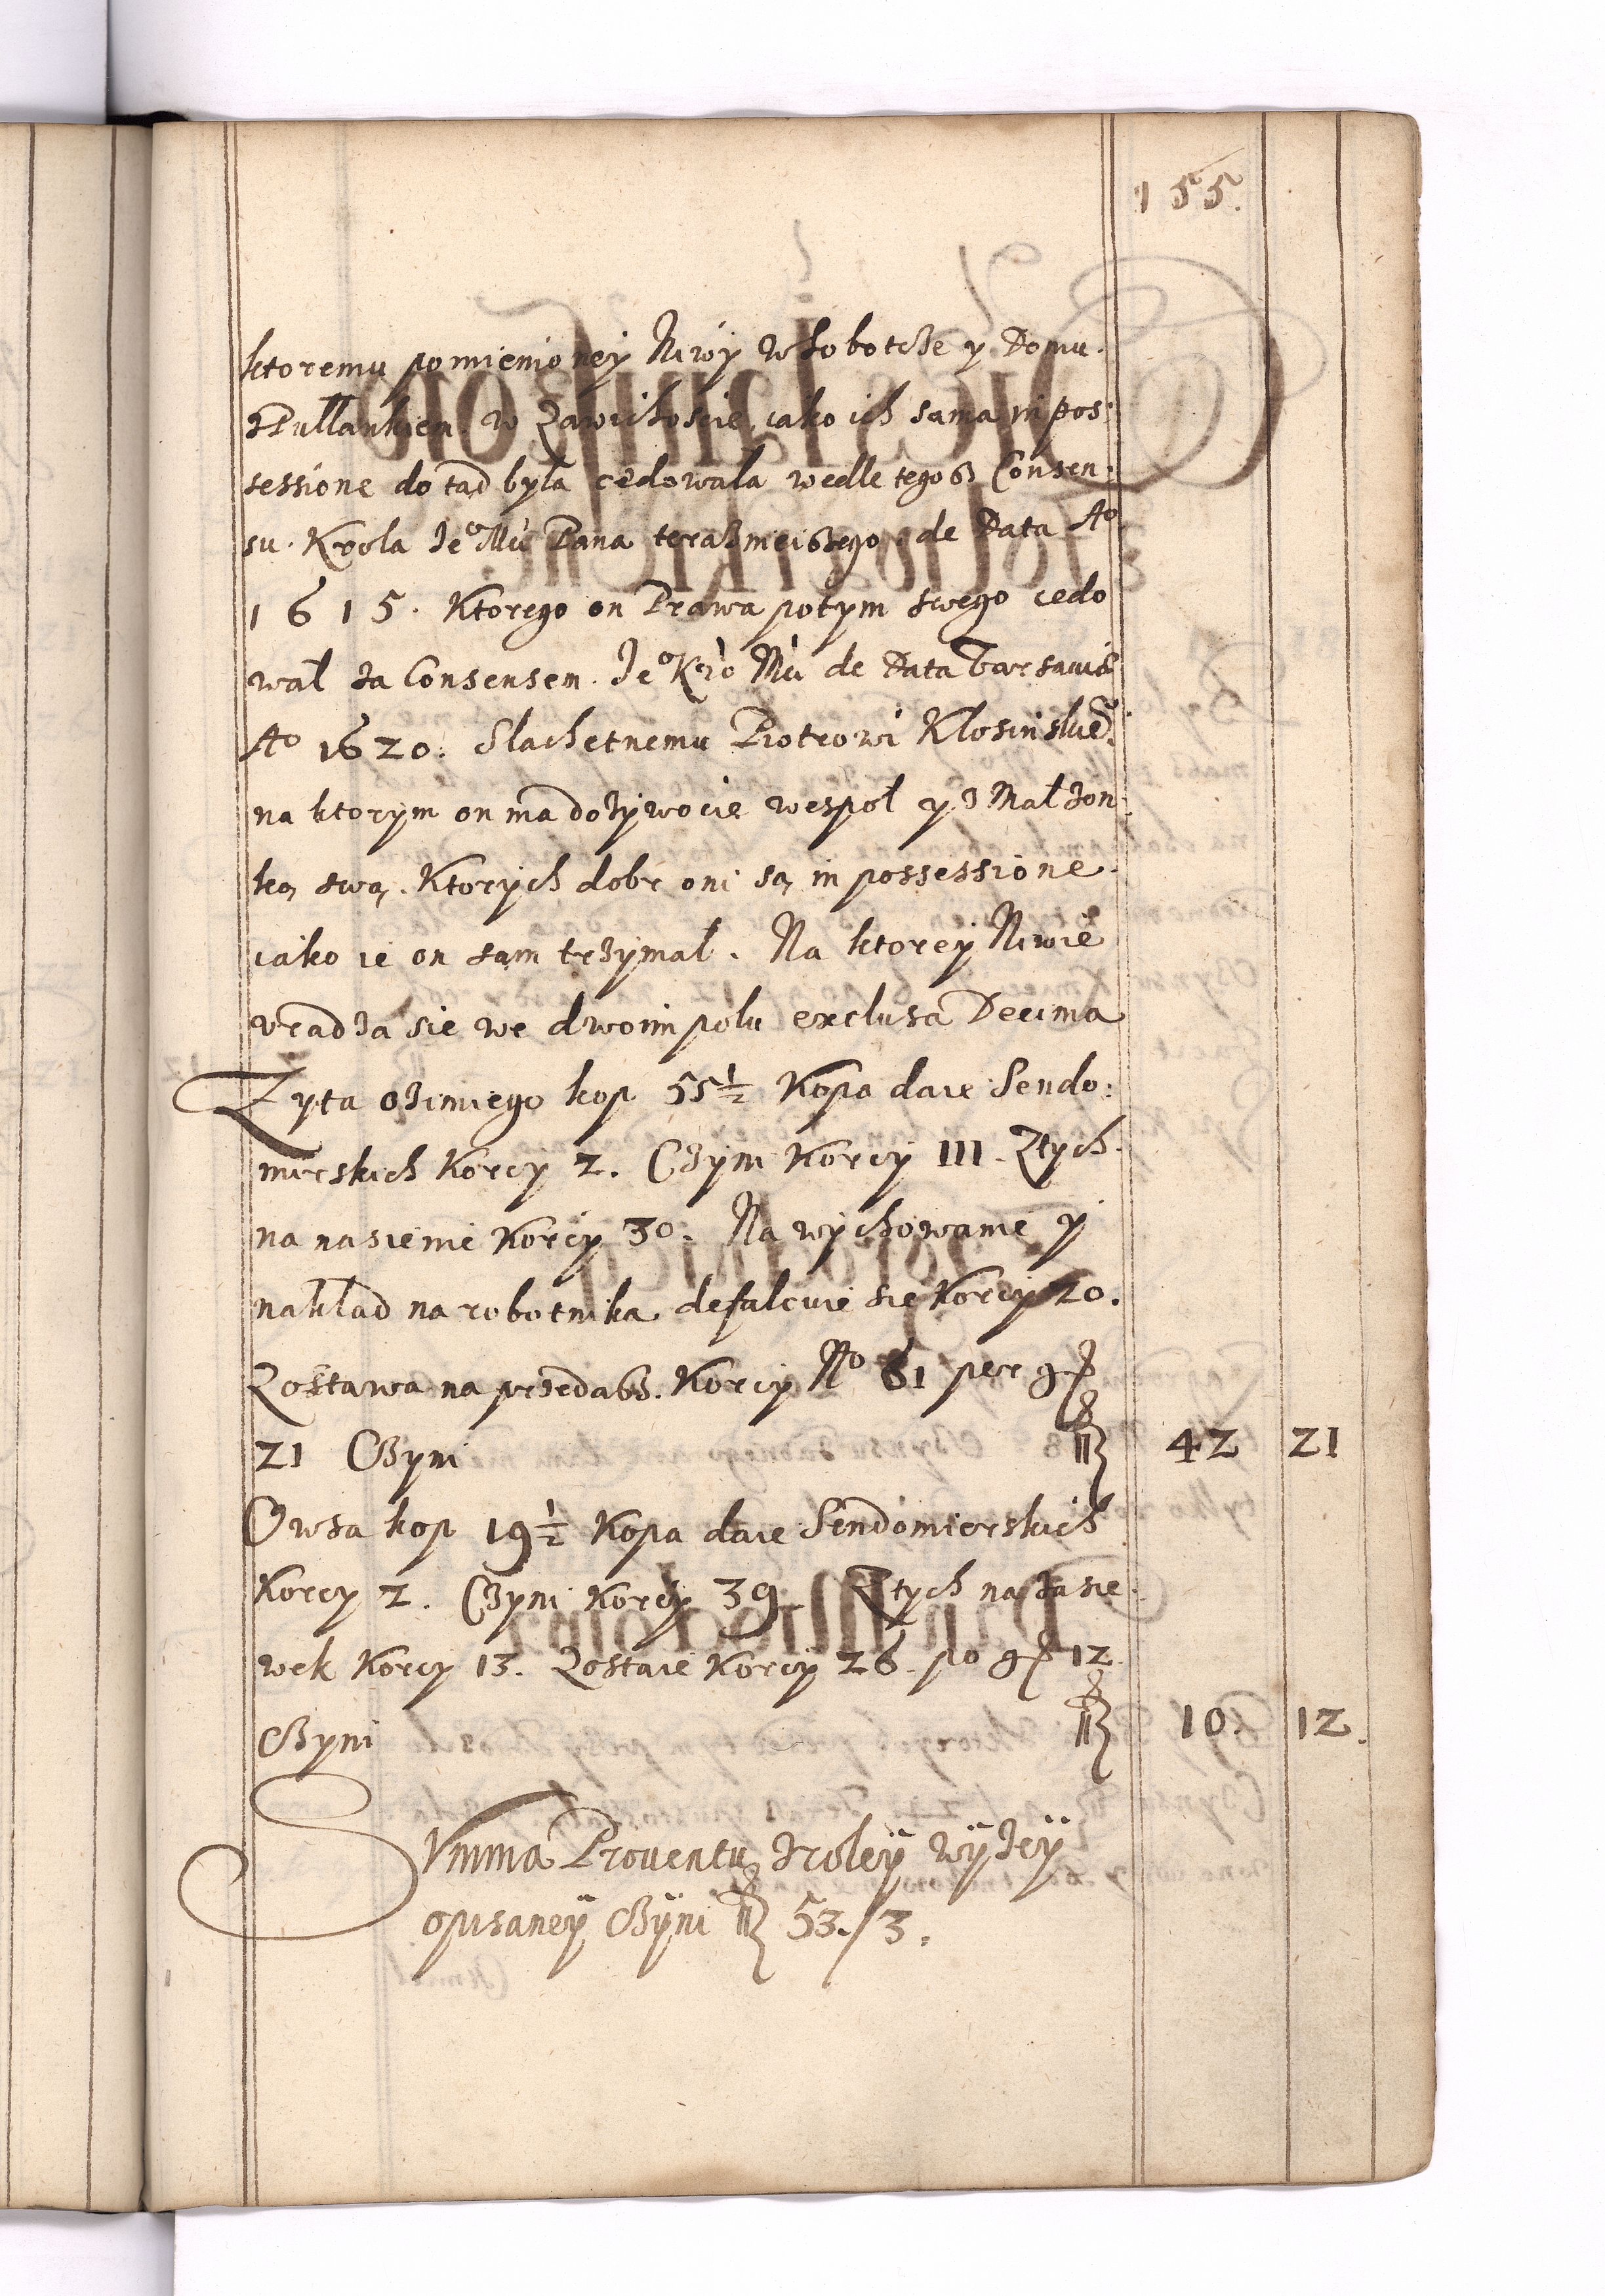 155.
ktoremu pomienioney Niwy w Sobotcze y Domu
z Pullankiem. w Zawichoście, iako ich sama in pos
sessione do tąd była cedowała wedle tegoß Consen
su. Krola Jeº Mći Pana teraßnieißego de Data Aº
1615. Ktorego on Prawa potym swego cedo
wał za Consensem. Jeº Kró Mći de Data Varsauiæ
Aº 1620. Slachetnemu Piotrowi Klosinskie͂
na ktorym on ma dożywocie wespoł y z Małżon
ką swą. Ktorych dobr oni są in possessione.
iako ie on sam trzymał. Na ktorey Niwie
vradza sie we dwoim polu exclusa Decima
Zyta ozimiego kop 55½ Kopa daie Sendo:
mirskich Korcy 2. Czyni Korcy 111. Z tych
na nasienie Korcy 30. Na wychowanie y
nakład na robotnika defalcuie się Korcy 20.
Zostawa na przedaß. Korcy Nº 61 per gr
21 Czyni fl 42 21
Owsa kop 19½ Kopa daie Sendomierskich
Korcy 2. Czyni Korcy 39. Z tych na zasie
wek Korcy 13. Zostaie Korcy 26. po gr 12
Czyni fl 10. 12.
Summa Prouentu z roley wyżey
opisaney Czyni fl 53./3.